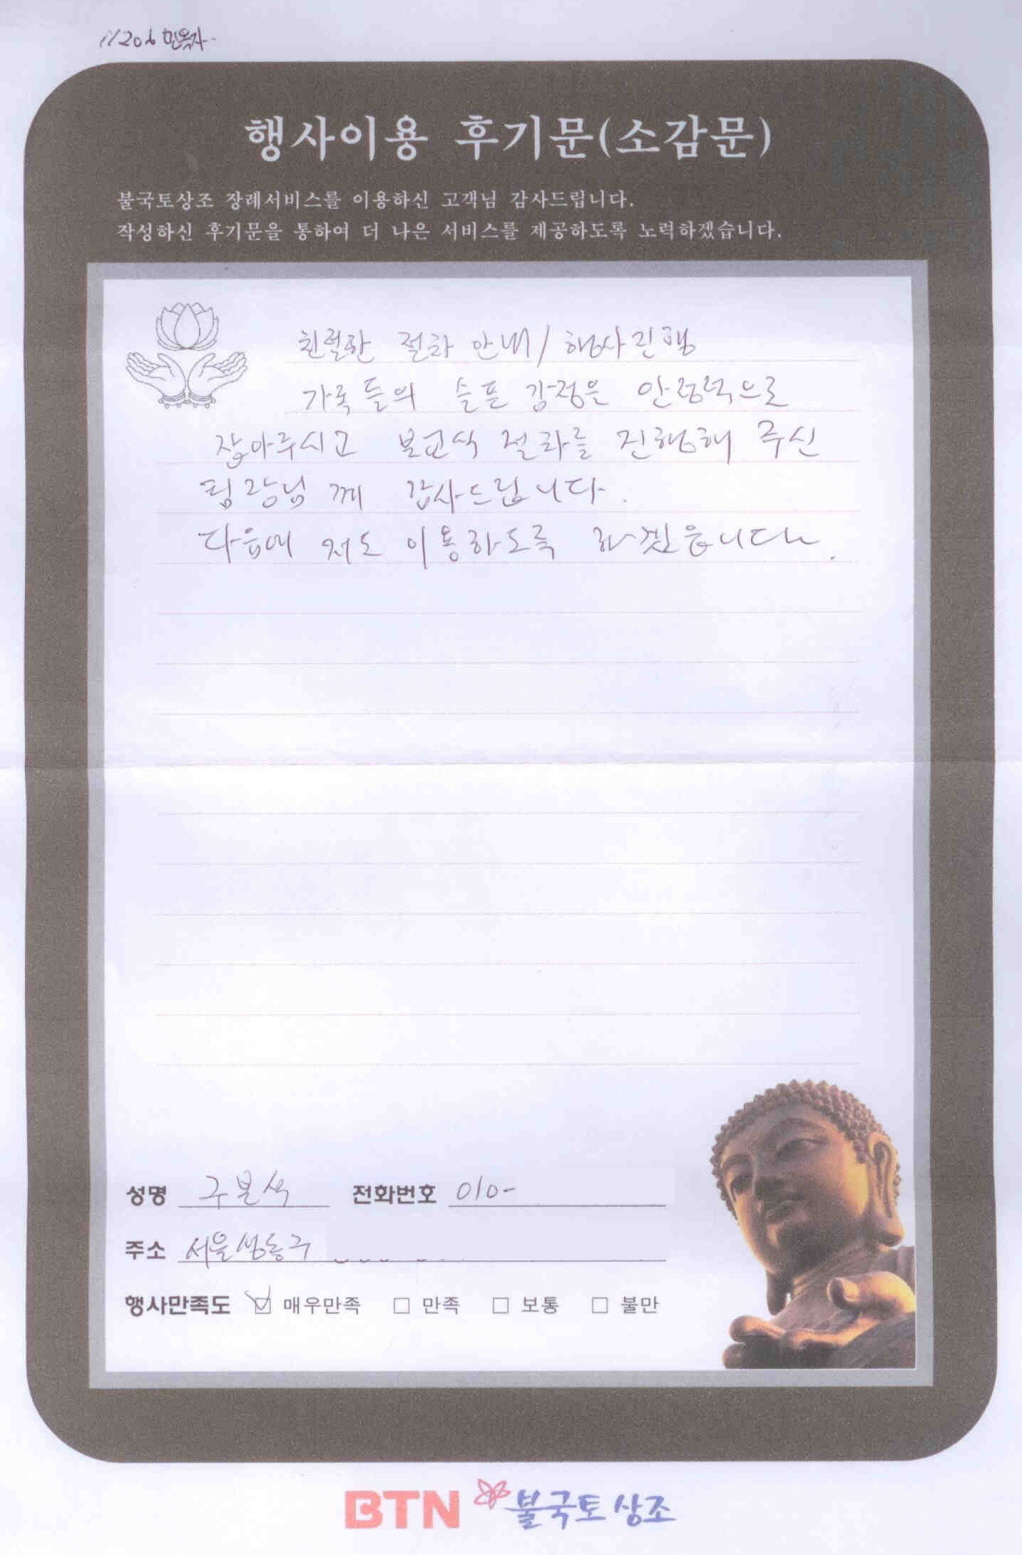 11206 민옥자
행사이용 후기문(소감문)
불국토상조 장례서비스를 이용하신 고객님 감사드립니다.
작성하신 후기문을 통하여 더 나은 서비스를 제공하도록 노력하겠습니다.
친절한 절차 안내/행사진행
가족들의 슬픈 감정은 안정적으로
잡아주시고 불교식 절차를 진행해 주신
팀장님 께 감사드립니다.
다음에 저도 이용하도록 하겠읍니다.
성명 구본석 전화번호 010-
주소 서울 성동구
행사만족도 ☑ 매우만족 □ 만족 □ 보통 □ 불만
BTN 불국토상조